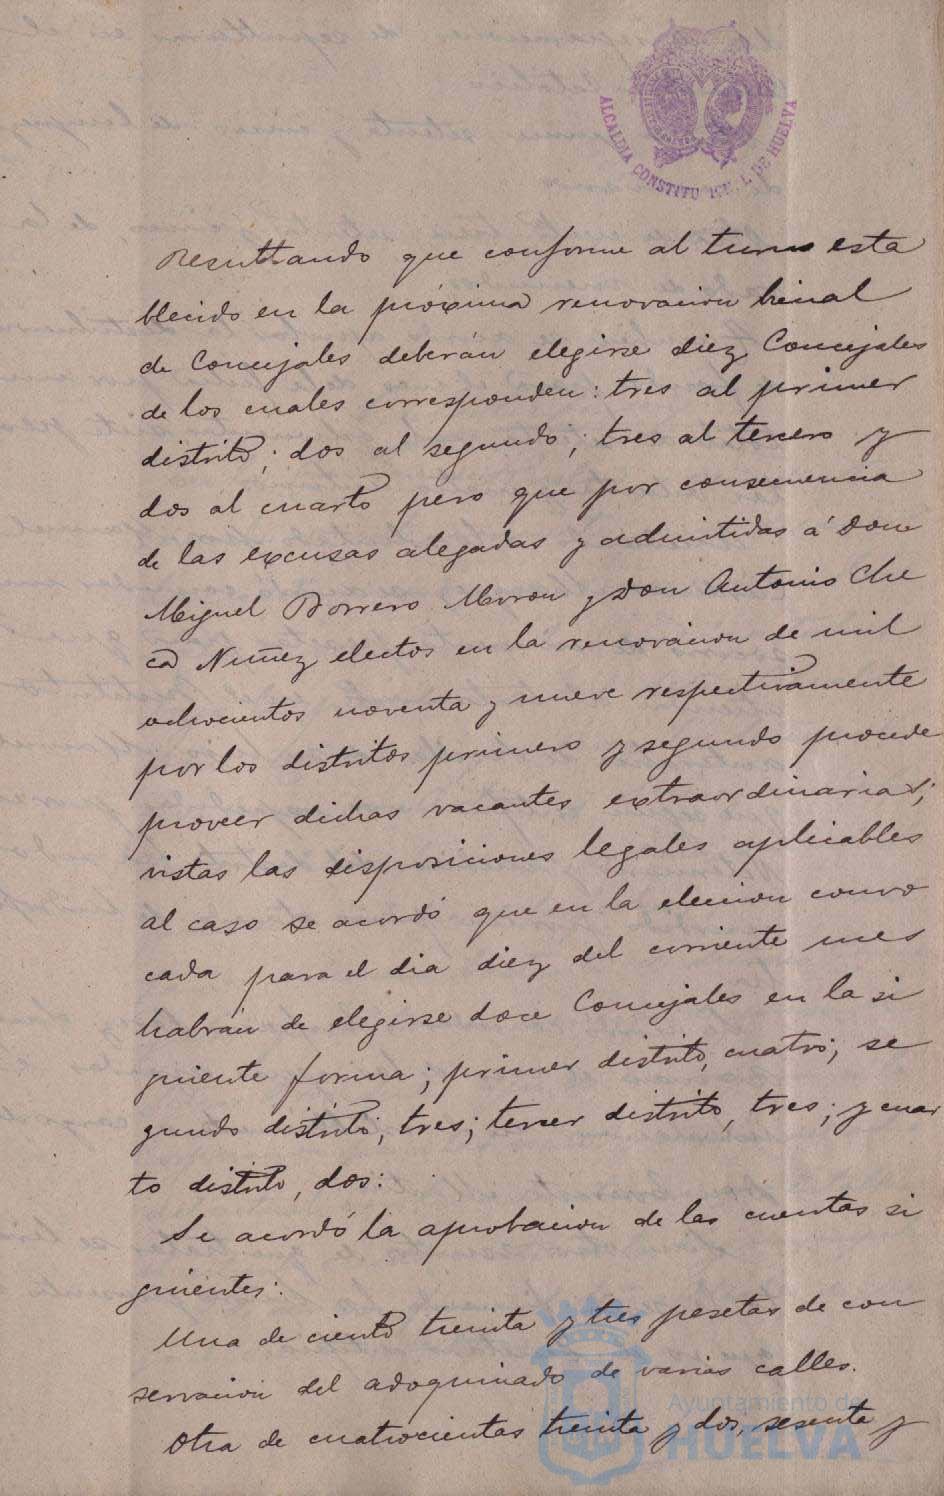 ALCALDIA CONSTITUCIONAL DE HUELVA
Resultando que conforme al turno esta
blecido en la próxima renovacion bienal
de Concejales deberán elegirse diez Concejales
de los cuales corresponden: tres al primer
distrito; dos al segundo; tres al tercero y
dos al cuarto pero que por consecuencia
de las excusas alegadas y admitidas á Don
Miguel Borrero Moron y Don Antonio Che
ca Nuñez electos en la renovacion de mil
ochocientos noventa y nueve respectivamente
por los distritos primero y segundo procede
proveer dichas vacantes extraordinarias;
vistas las disposiciones legales aplicables
al caso se acordó que en la eleccion convo
cada para el dia diez del corriente mes
habrán de elegirse doce Concejales en la si
guiente forma; primer distrito, cuatro; se
gundo distrito, tres; tercer distrito, tres; y cuar
to distrito, dos:
Se acordó la aprobacion de las cuentas si
guientes:
Una de ciento treinta y tres pesetas de con
servacion del adoquinado de varias calles.
Otra de cuatrocientas treinta y dos, sesenta y
Ayuntamiento de
HUELVA